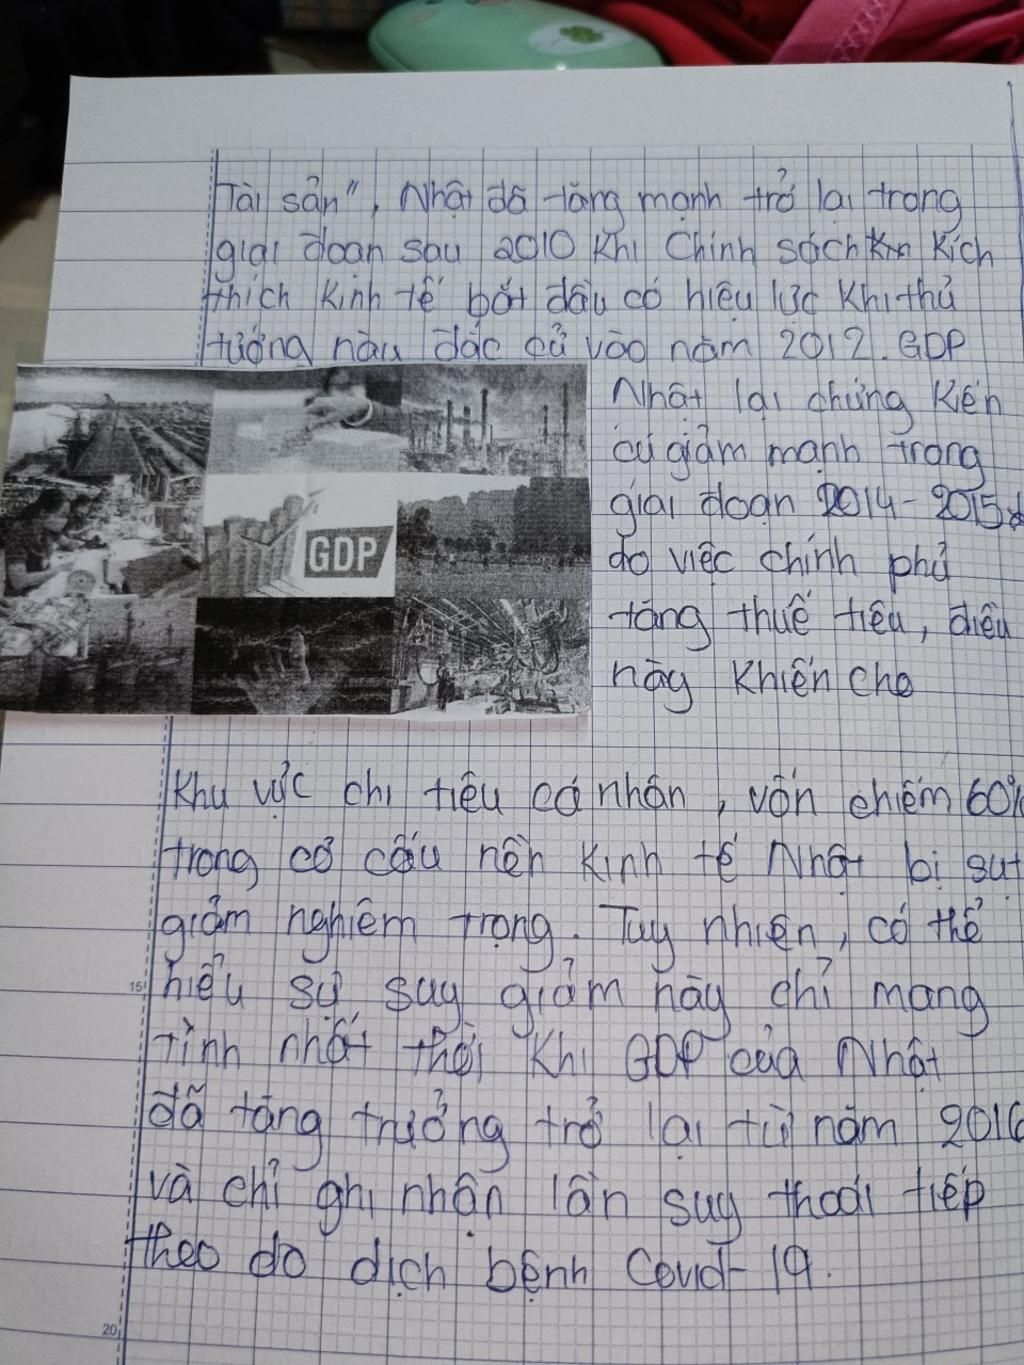 Tài sản", Nhật đã tăng mạnh trở lại trong
giai đoạn sau 2010 khi Chính sách kích
thích kinh tế bắt đầu có hiệu lực khi thủ
tướng này đắc cử vào năm 2012. GDP
Nhật lại chứng kiến
cú giảm mạnh trong
giai đoạn 2014-2015
do việc chính phủ
tăng thuế tiêu, điều
này khiến cho
GDP
khu vực chi tiêu cá nhân, vốn chiếm 60%
trong cơ cấu nền kinh tế Nhật bị sụt
giảm nghiêm trọng. Tuy nhiên, có thể
hiểu sự suy giảm này chỉ mang
tính nhất thời khi GDP của Nhật
đã tăng trưởng trở lại từ năm 2016
và chỉ ghi nhận lần suy thoái tiếp
theo do dịch bệnh Covid-19.
15
20